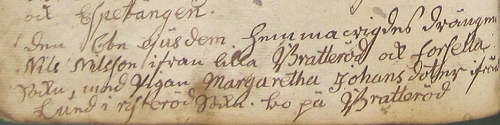 och Espetången.
den Ebe ejusdem hemmavigdes drängen
Nils Nilsson ifrån lilla Bratteröd och forsella
Sokn, med pigan Margaretha Johans doter ifrån
Lund i risteröd Sokn. bo på Bratteröd